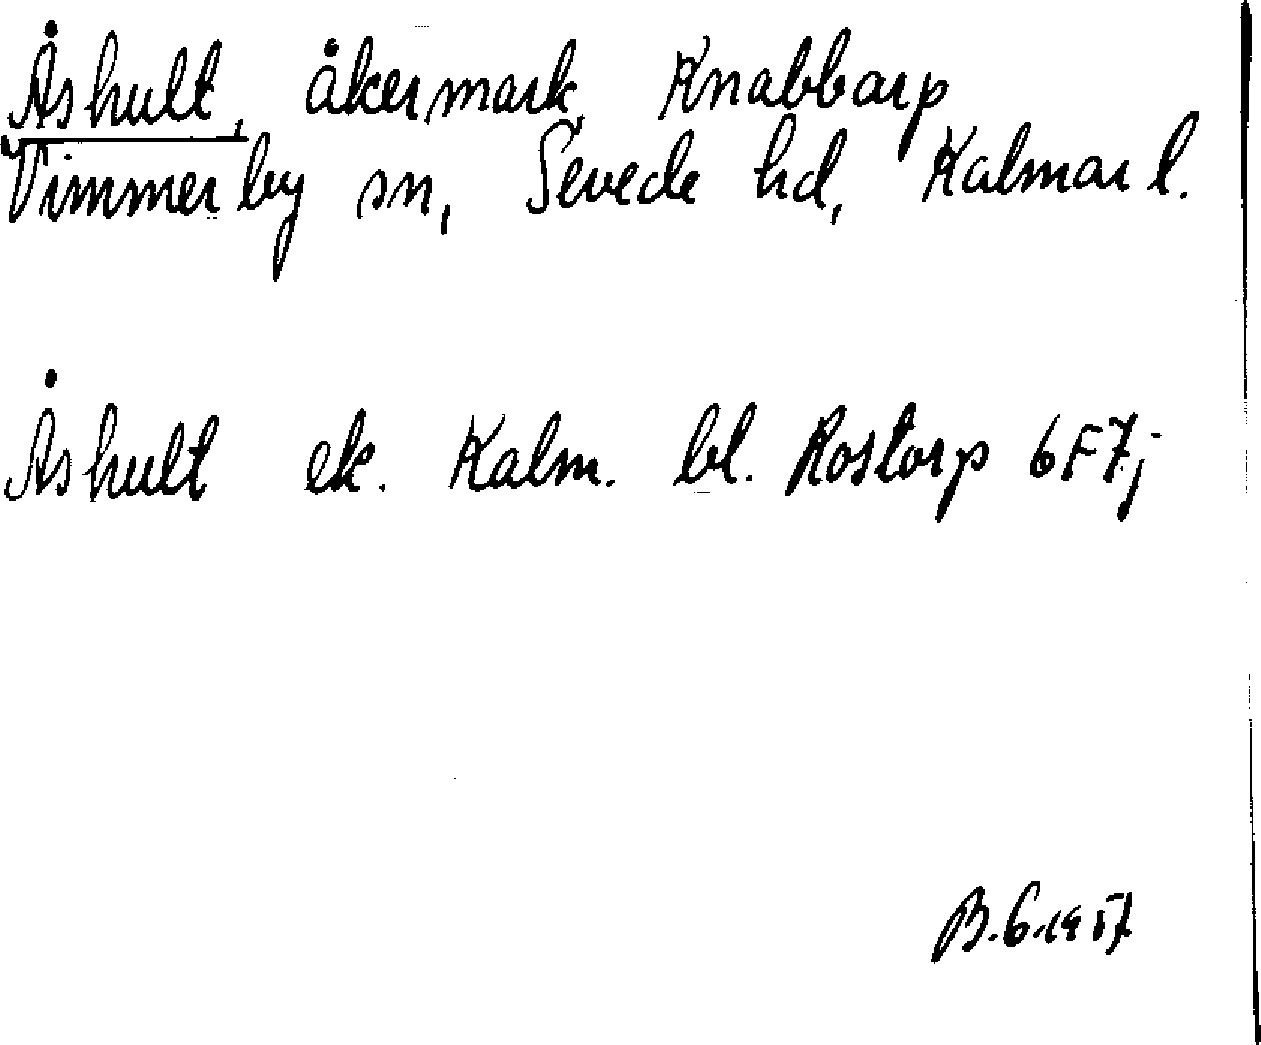 Åshult, åkermark, Knabbarp
Vimmerby sn, Sevede hd, Kalmar l.
Åshult ek. Kalm. bl. Rostorp 6F7j
B.G.1957